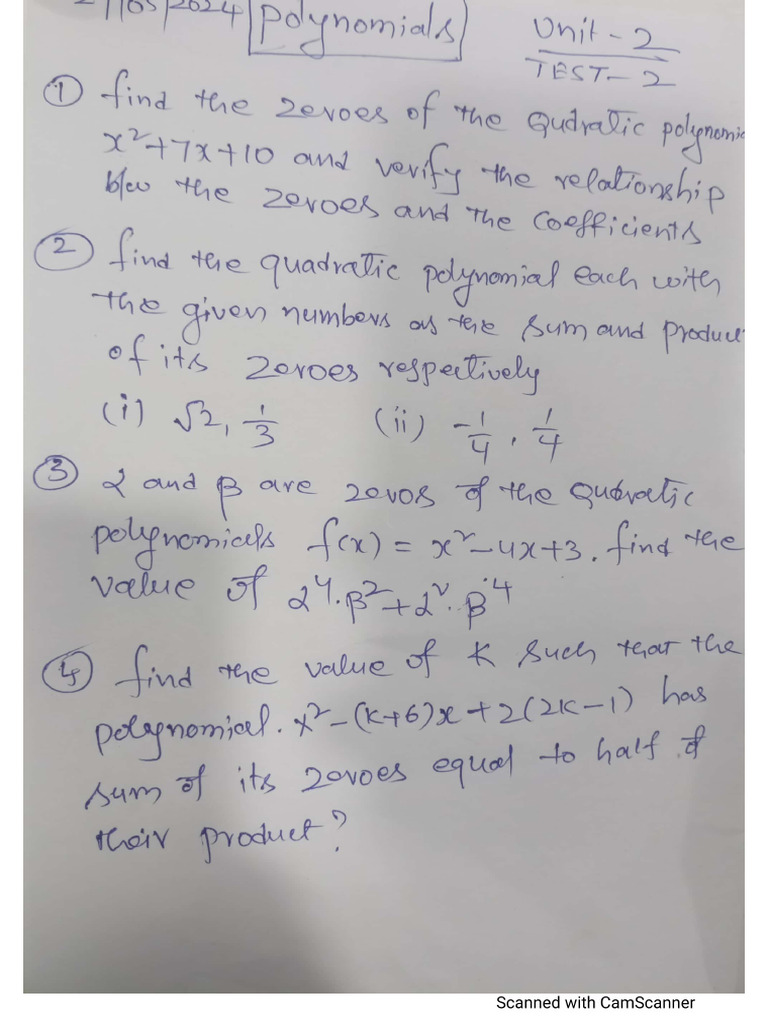 21/05/2024 polynomials Unit-2
TEST-2
① find the zeroes of the Qudratic polynomi
x²+7x+10 and verify the relationship
b/w the zeroes and the coefficients
② find the quadratic polynomial each with
the given numbers as the sum and product
of its zeroes respectively
(i) √2, 1/3 (ii) -1/4, 1/4
③ α and β are zeros of the Quadratic
polynomials f(x) = x²-4x+3. find the
value of α⁴.β²+α².β⁴
④ find the value of K such that the
polynomial. x²-(k+6)x+2(2k-1) has
sum of its zeroes equal to half of
their product?
Scanned with CamScanner